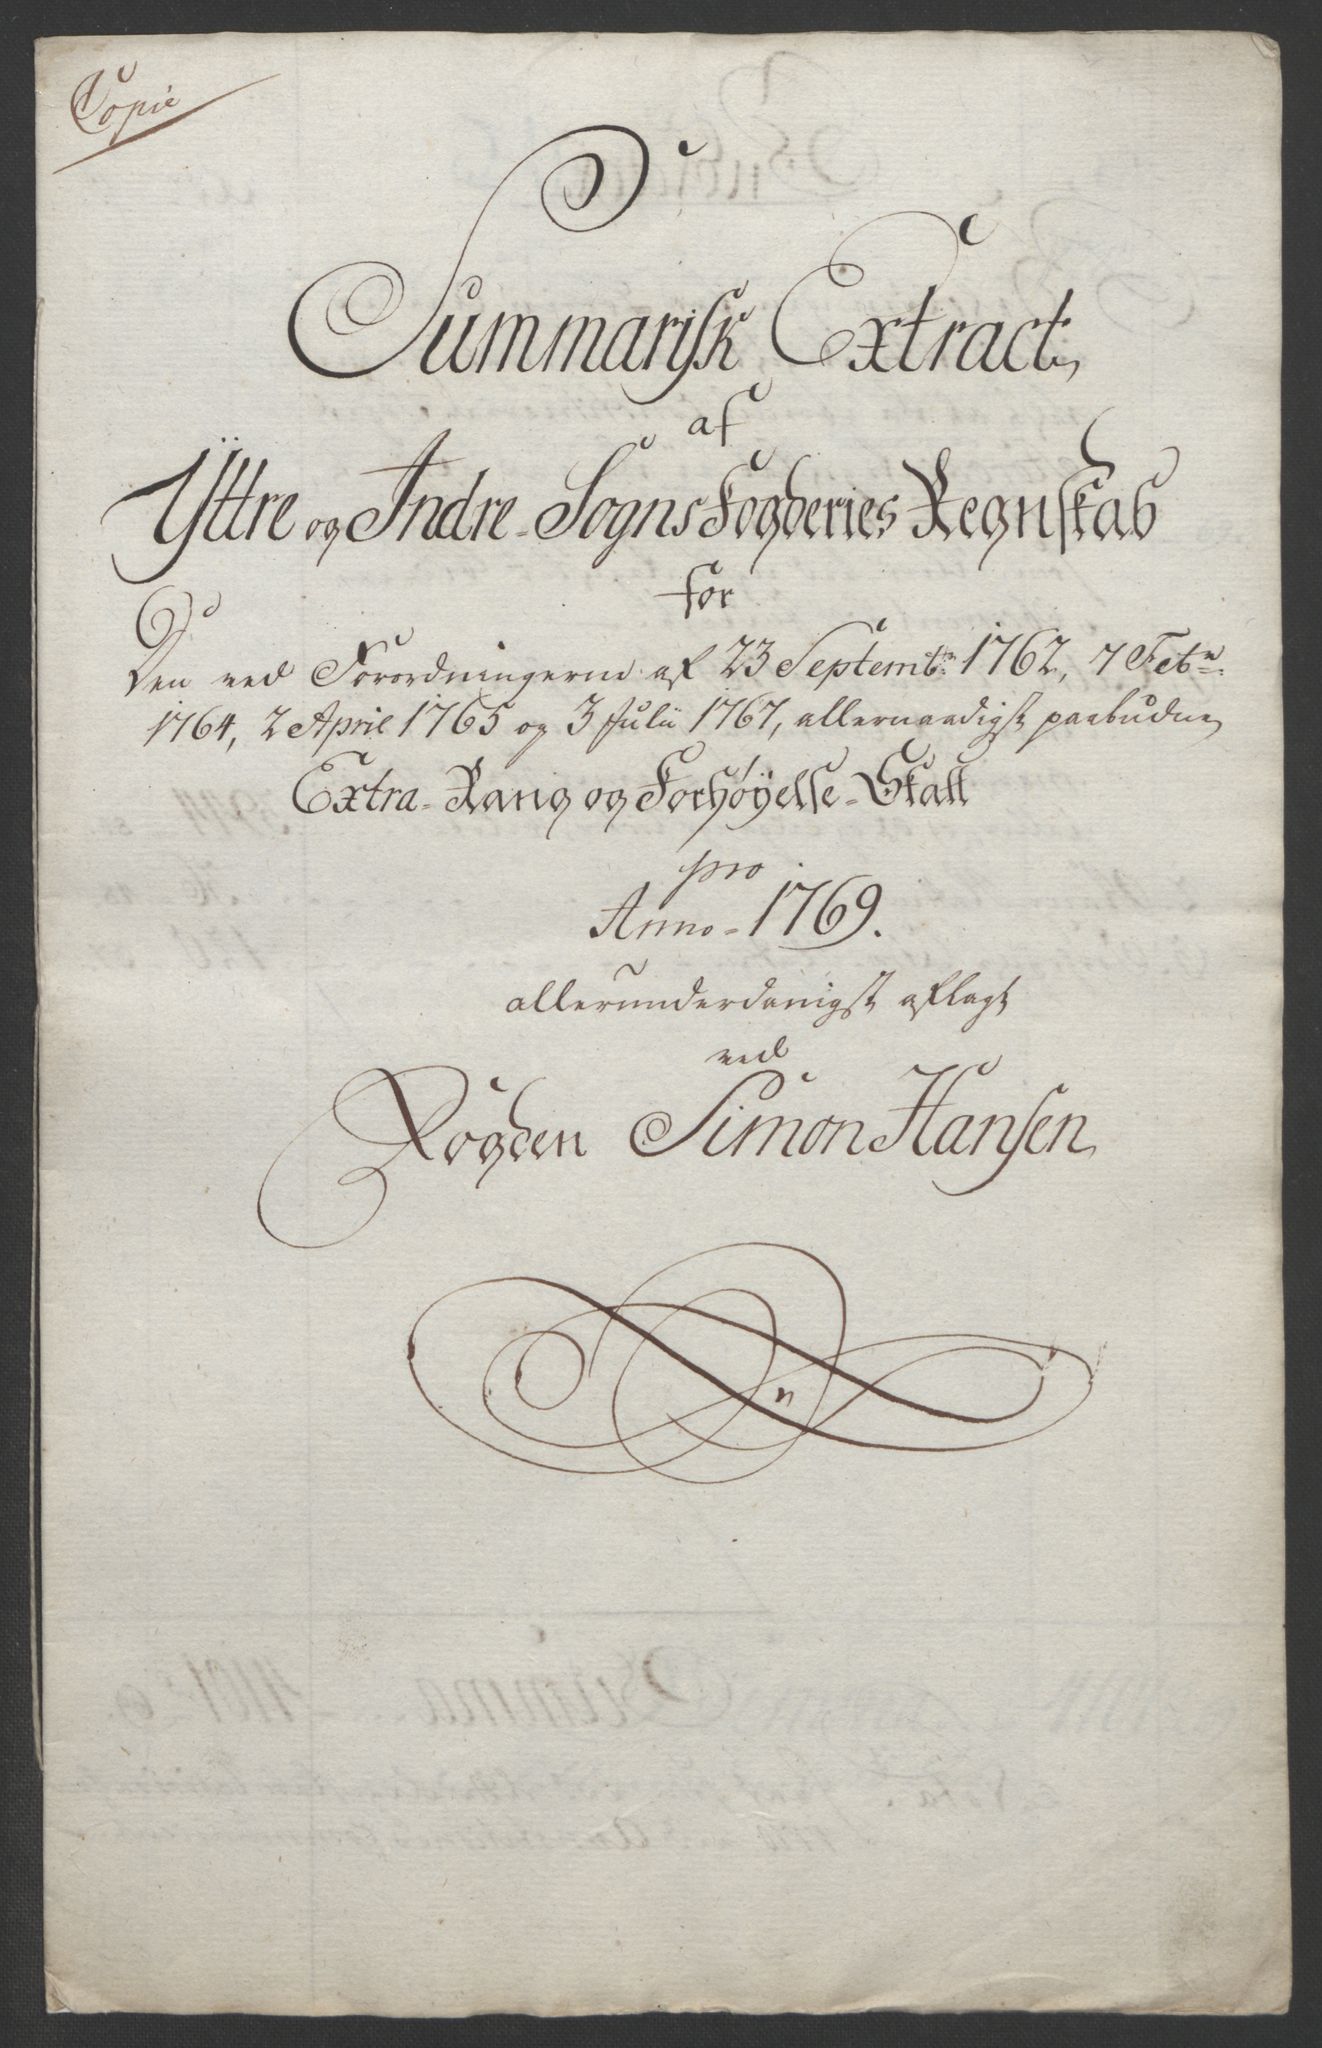 Copie
Summarisk Extract,
af
Yttre og Indre-Sogns Fogderies Regnskab
for
Den ved Forordningerne af 23 Septembr: 1762, 7 Febr:
1764, 2 April 1765 og 3 Julii 1767, allernaadigst paabudne
Extra-Rang og Forhøyelse-Skatt
pro
Anno-1769.
allerunderdanigst aflagt
ved
Fogden Simon Hansen